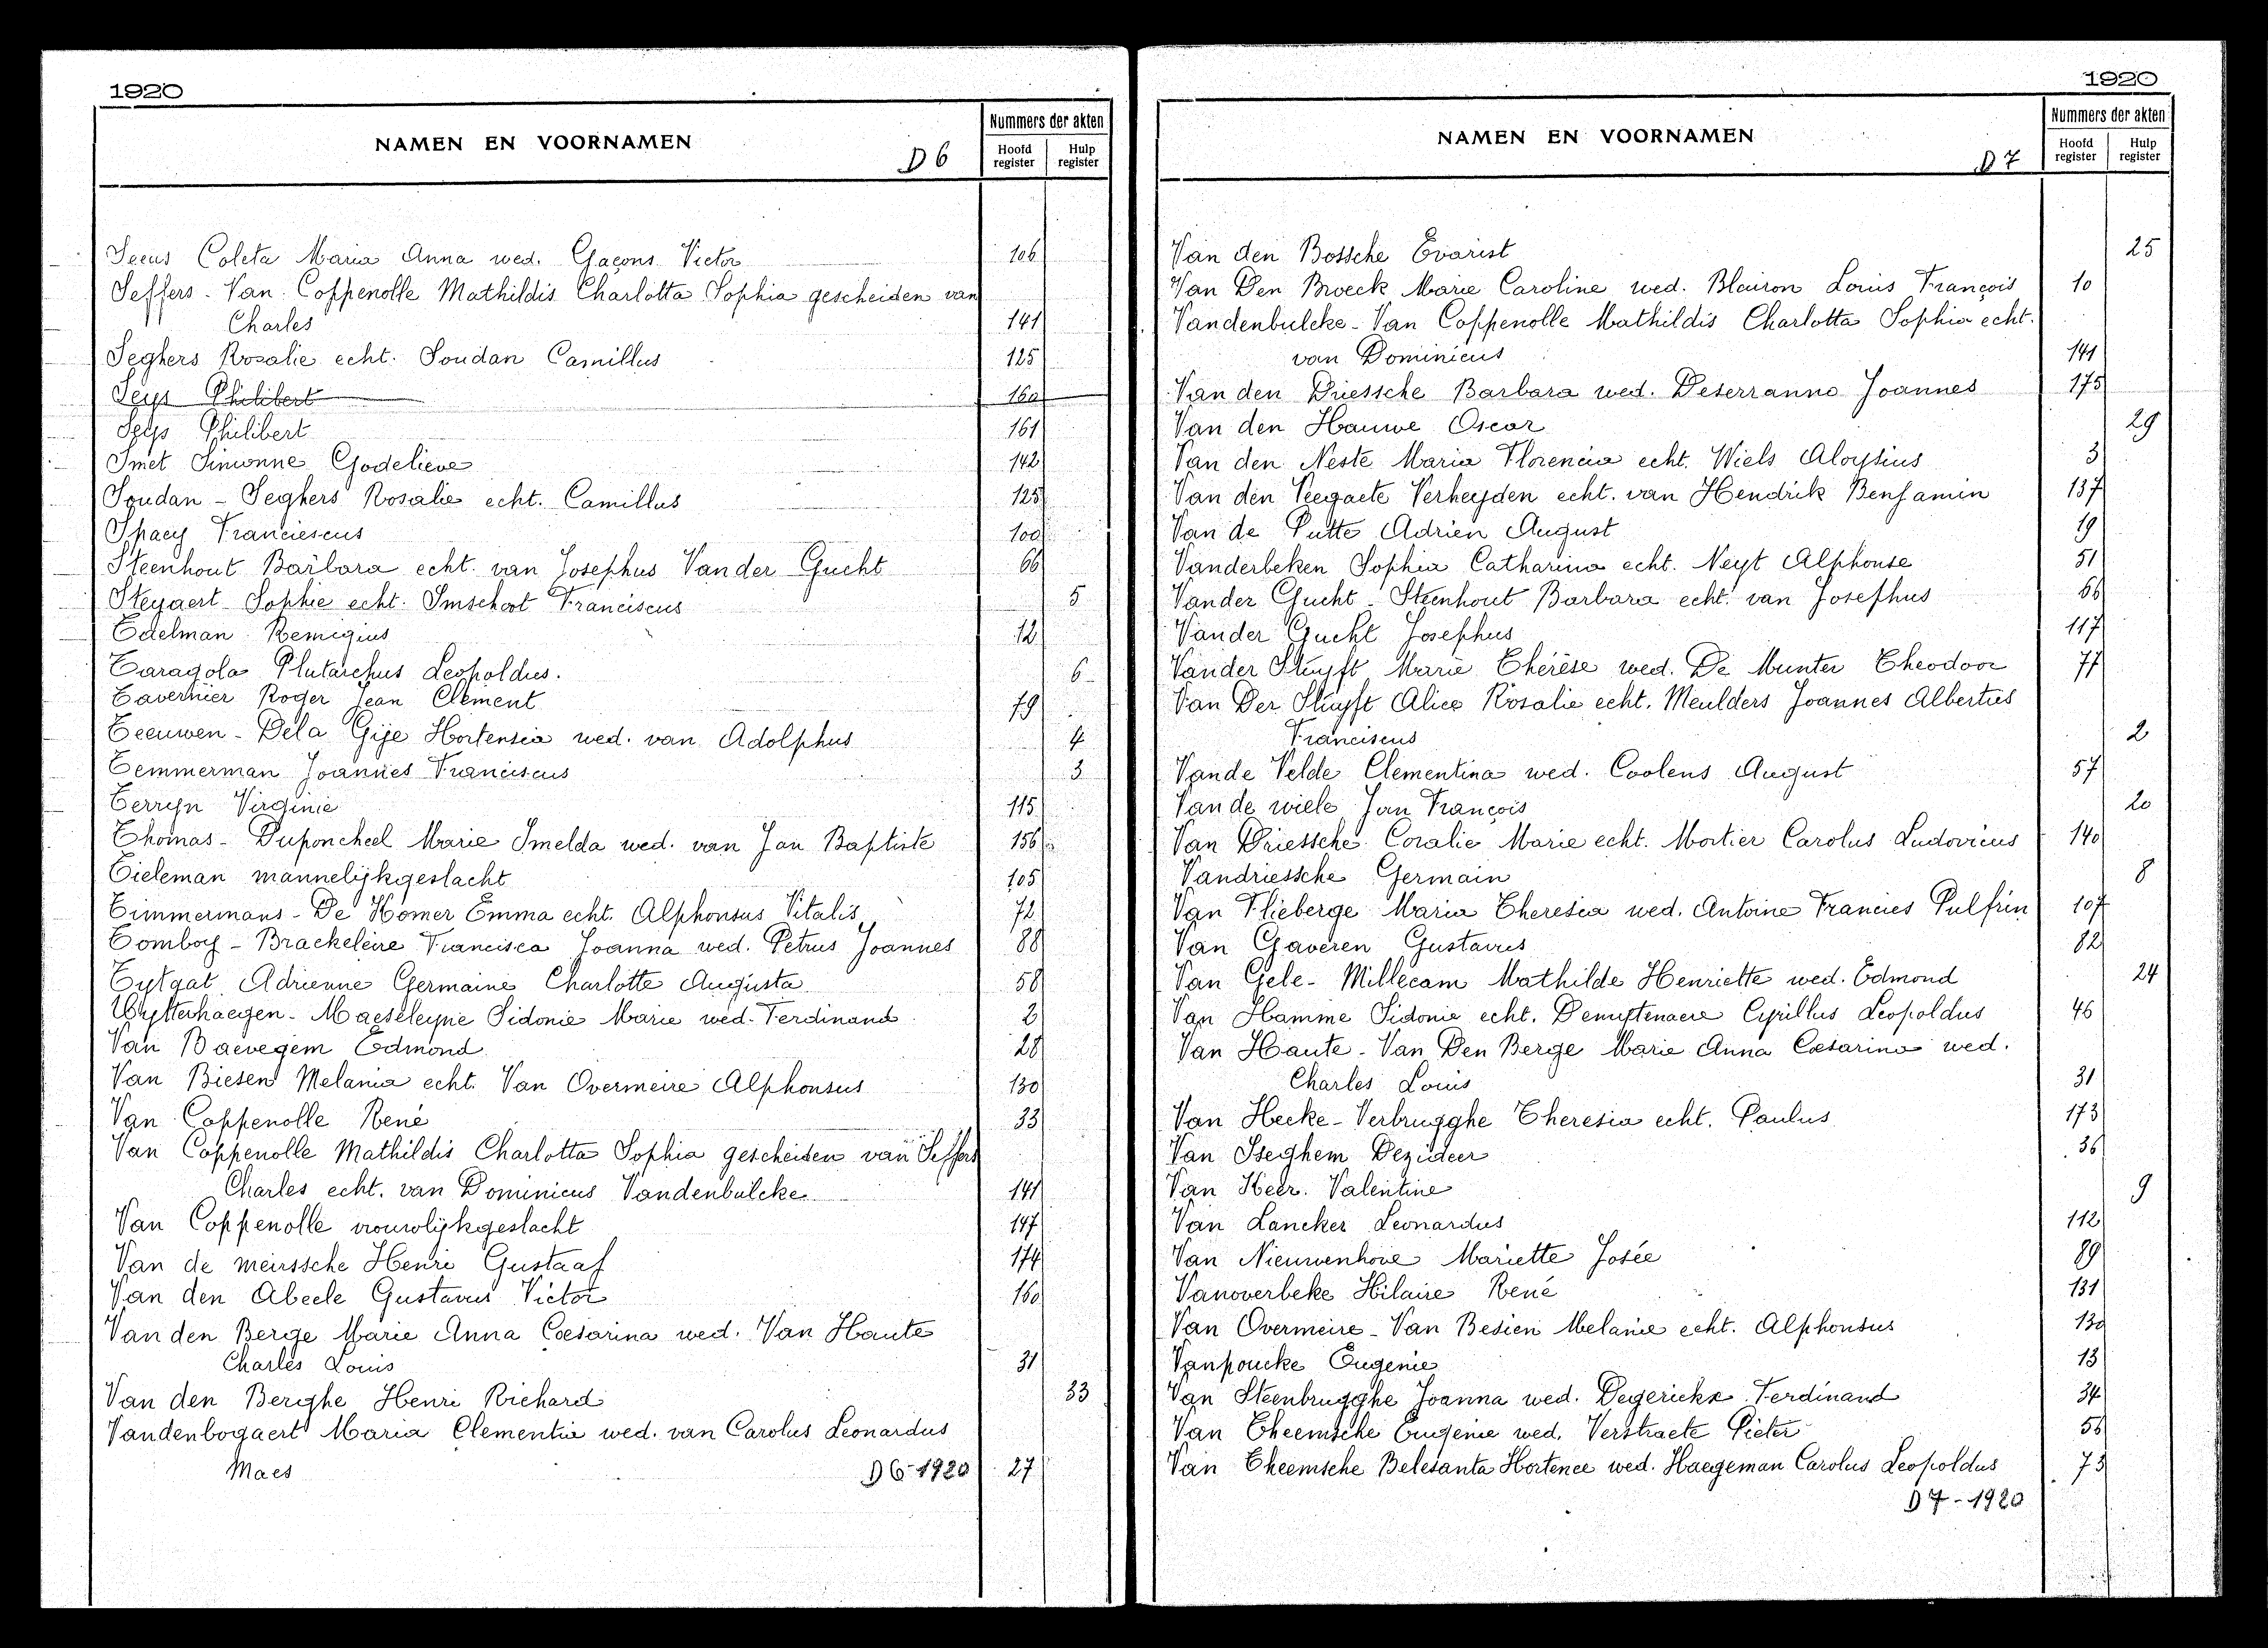 1920
NAMEN EN VOORNAMEN
D 6
Nummers der akten
Hoofd register
Hulp register
Secus Coleta Maria Anna wed. Gaçons Victor 106
Seffers - Van Coppenolle Mathildis Charlotta Sophia gescheiden van
Charles 141
Seghers Rosalie echt. Soudan Camillus 125
Seys Philibert 160
Seys Philibert 161
Smet Simonne Godelieve 142
Soudan - Seghers Rosalie echt. Camillus 125
Spaey Franciescus 100
Steenhout Barbara echt. van Josephus Van der Gucht 66
Steyaert Sophie echt. Imschoot Franciscus 5
Edelman Remigius 12
Taragola Plutarchus Leopoldus. 6
Tavernier Roger Jean Clement 79
Teeuwen - Dela Gije Hortensia wed. van Adolphus 4
Temmerman Joannes Franciscus 3
Terryn Virginie 115
Thomas - Duponcheel Marie Imelda wed. van Jan Baptiste 156
Tieleman mannelijkgeslacht 105
Timmermans - De Homer Emma echt. Alphonsus Vitalis 72
Tomboy - Brackeleire Francisca Joanna wed. Petrus Joannes 88
Tytgat Adrienne Germaine Charlotte Augusta 58
Uytterhaegen - Maeseleyne Sidonie Marie wed. Ferdinand 2
Van Baevegem Edmond 28
Van Biesen Melania echt. Van Overmeire Alphonsus 130
Van Coppenolle René 33
Van Coppenolle Mathildis Charlotta Sophia gescheiden van Seffers
Charles echt. van Dominicus Vandenbulcke 141
Van Coppenolle vrouwlijkgeslacht 147
Van de meirssche Henri Gustaaf 174
Van den Abeele Gustavus Victor 160
Van den Berge Marie Anna Coesarina wed. Van Haute
Charles Louis 31
Van den Berghe Henri Richard 33
Vandenbogaert Maria Clementia wed. van Carolus Leonardus
Maes D 6 - 1920 27
1920
NAMEN EN VOORNAMEN
D 7
Nummers der akten
Hoofd register
Hulp register
Van den Bossche Evarist 25
Van Den Broeck Marie Caroline wed. Blairon Louis François 10
Vandenbulcke - Van Coppenolle Mathildis Charlotta Sophia echt.
van Dominicus 141
Van den Driessche Barbara wed. Deserranno Joannes 175
Van den Hauwe Oscar 29
Van den Neste Maria Florencia echt. Wiels Aloysius 3
Van den Veegaete Verheyden echt. van Hendrik Benjamin 137
Van de Putte Adrien August 19
Vanderbeken Sophia Catharina echt. Neyt Alphonse 51
Vander Gucht - Steenhout Barbara echt. van Josephus 66
Vander Gucht Josephus 117
Vander Stuyft Marie Thérèse wed. De Munter Theodoor 77
Van Der Stuyft Alice Rosalie echt. Meulders Joannes Albertus
Franciscus 2
Vande Velde Clementina wed. Coolens August 57
Van de wiele Jan François 20
Van Driessche Coralie Marie echt. Mortier Carolus Ludovicus 140
Vandriessche Germain 8
Van Flieberge Maria Theresia wed. Antoine Francies Pulfrin 107
Van Gaveren Gustavus 82
Van Gele - Millecam Mathilde Henriette wed. Edmond 24
Van Hamme Sidonie echt. Demuytenaere Cyrillus Leopoldus 46
Van Haute - Van Den Berge Marie Anna Coesarina wed.
Charles Louis 31
Van Hecke - Verbrugghe Theresia echt. Paulus 173
Van Iseghem Dezideer 36
Van Keer Valentine 9
Van Lancker Leonardus 112
Van Nieuwenhove Mariette Josée 89
Vanoverbeke Hilaire René 131
Van Overmeire - Van Besien Melanie echt. Alphonsus 130
Vanpoucke Eugenie 13
Van Steenbrugghe Joanna wed. Degerickx Ferdinand 34
Van Theemsche Eugenie wed. Verstraete Pieter 56
Van Theemsche Belesanta Hortence wed. Haegeman Carolus Leopoldus 73
D 7 - 1920